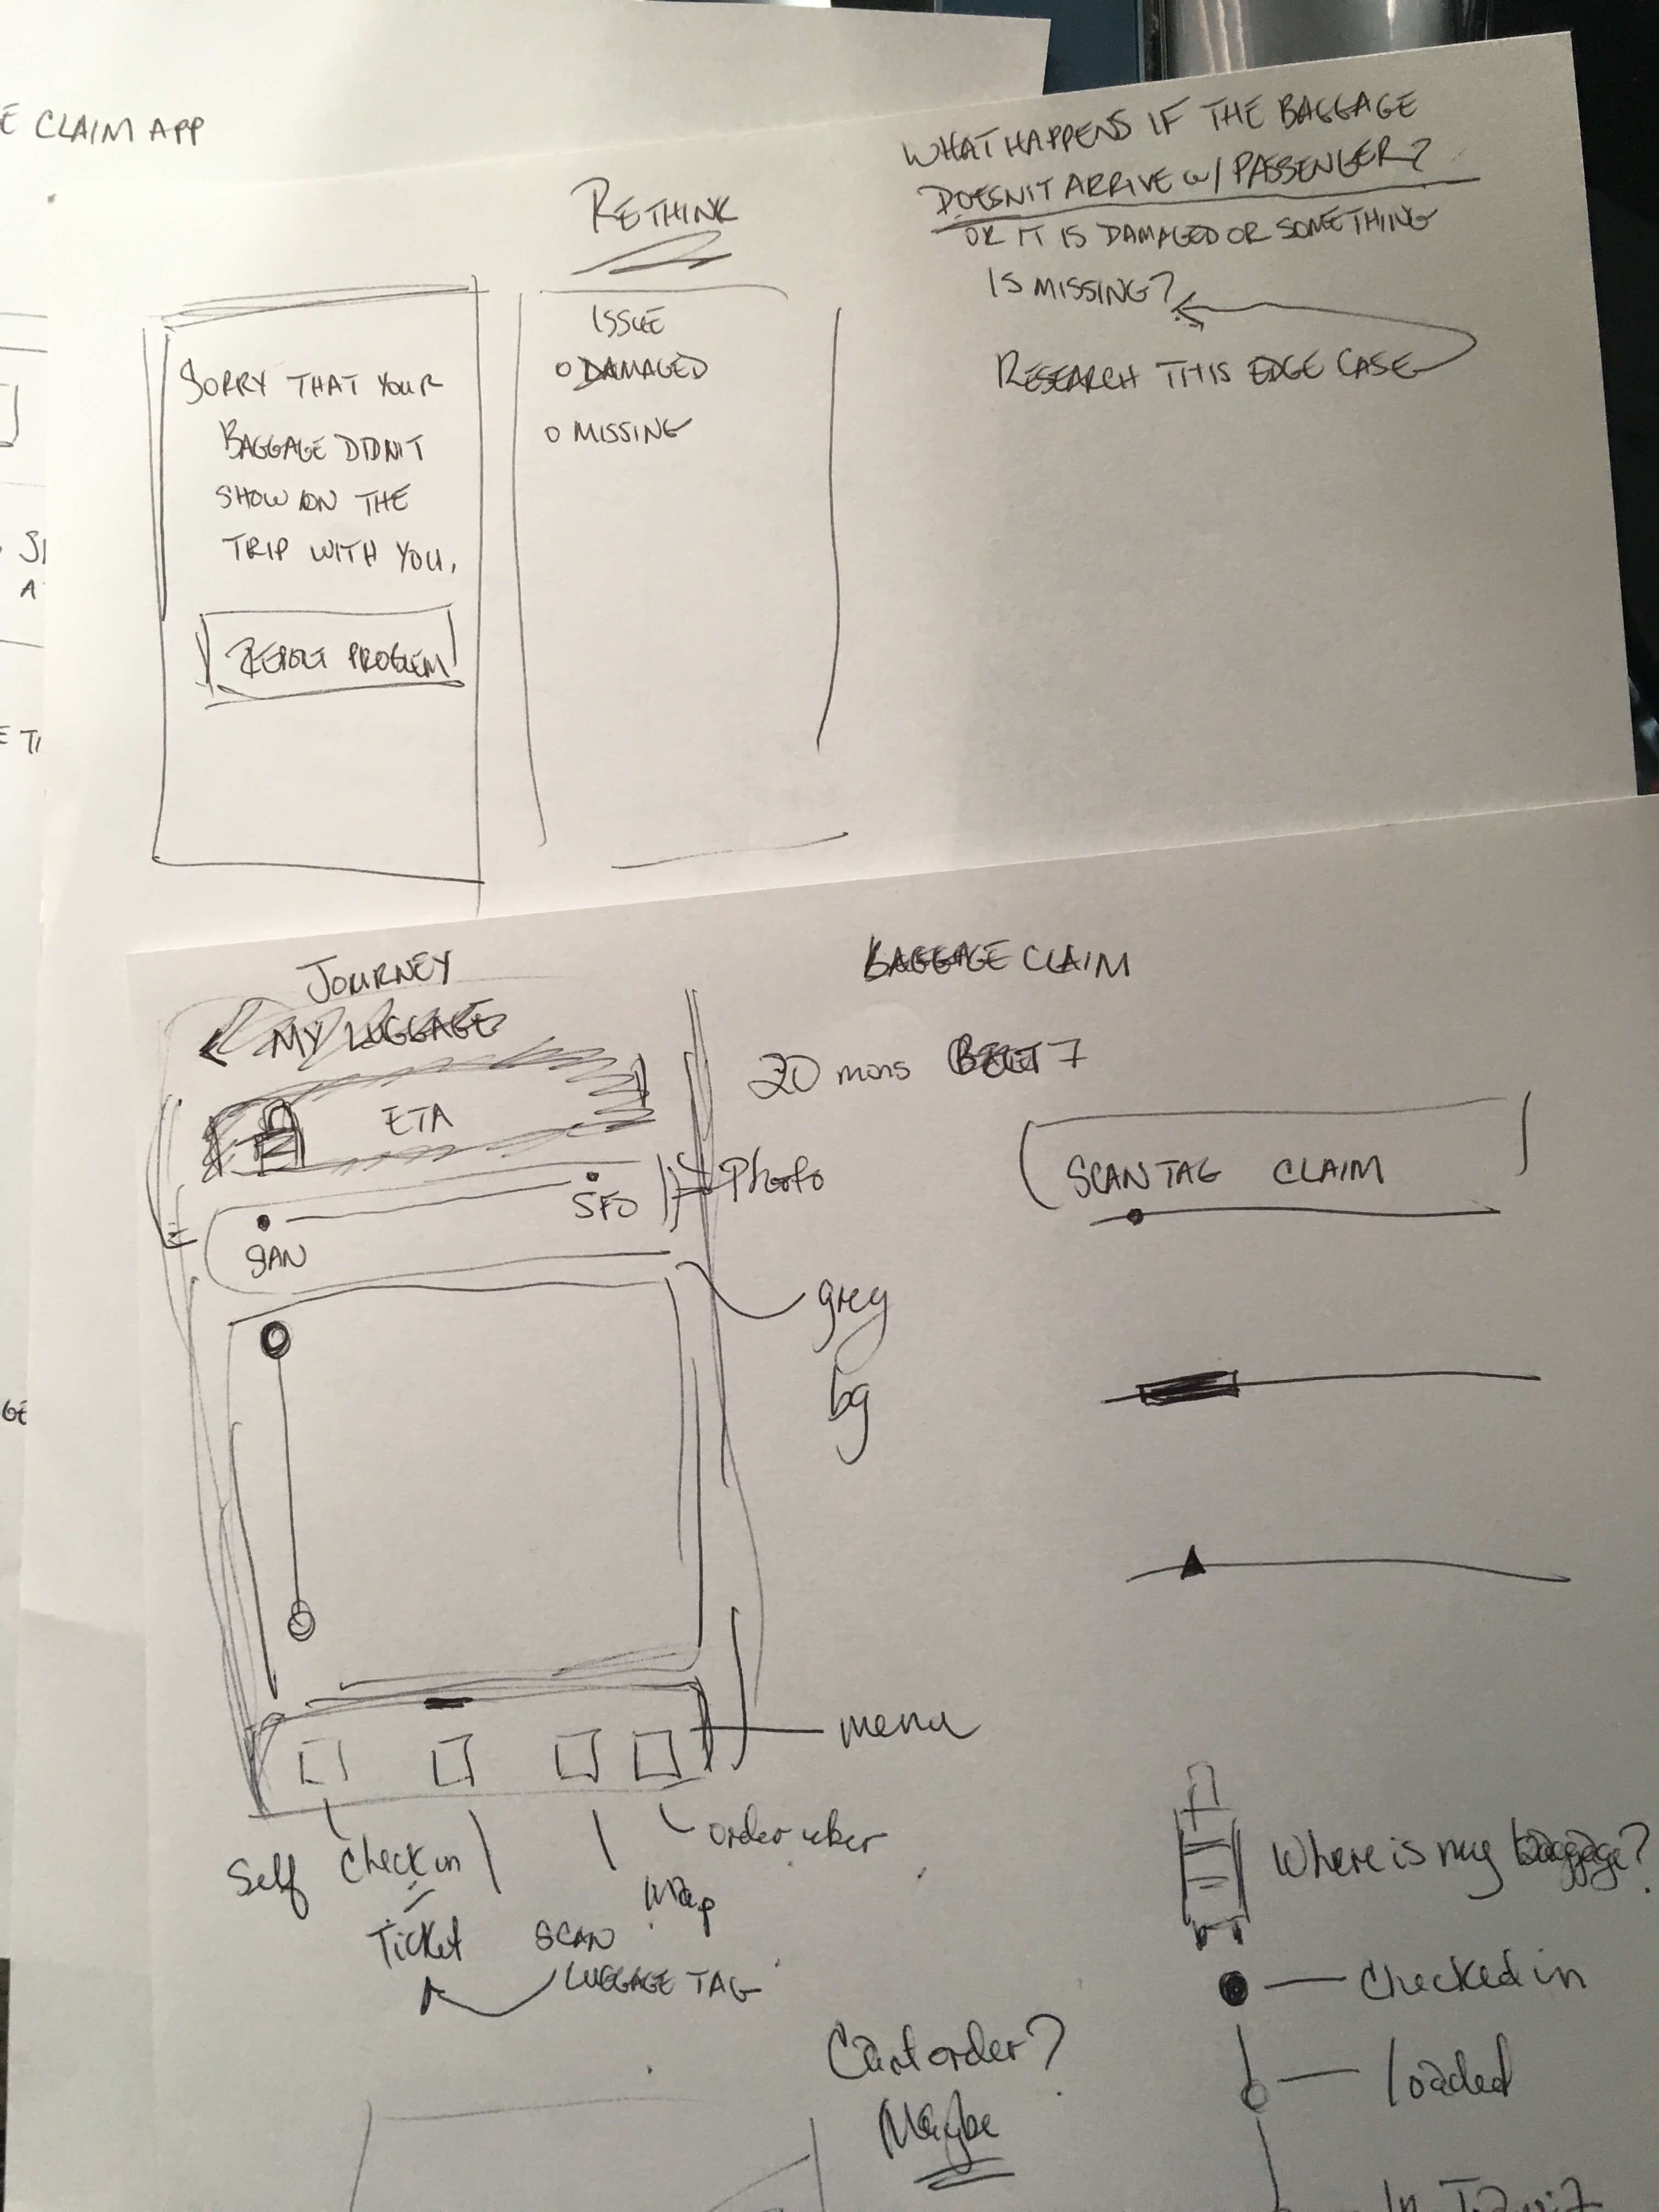 E CLAIM APP
RETHINK
WHAT HAPPENS IF THE BAGGAGE
DOESN'T ARRIVE W/ PASSENGER?
OR IT IS DAMAGED OR SOMETHING
IS MISSING?
RESEARCH THIS EDGE CASE
SORRY THAT YOUR
BAGGAGE DIDN'T
SHOW ON THE
TRIP WITH YOU.
REPORT PROBLEM
ISSUE
O DAMAGED
O MISSING
JOURNEY
MY LUGGAGE
ETA
SFO
SAN
Photo
grey
bg
menu
Self Check in
Ticket
SCAN
LUGGAGE TAG
Map
order uber
BAGGAGE CLAIM
20 mins BELT 7
SCAN TAG CLAIM
Where is my baggage?
Checked in
loaded
In Transit
Cart order?
Maybe